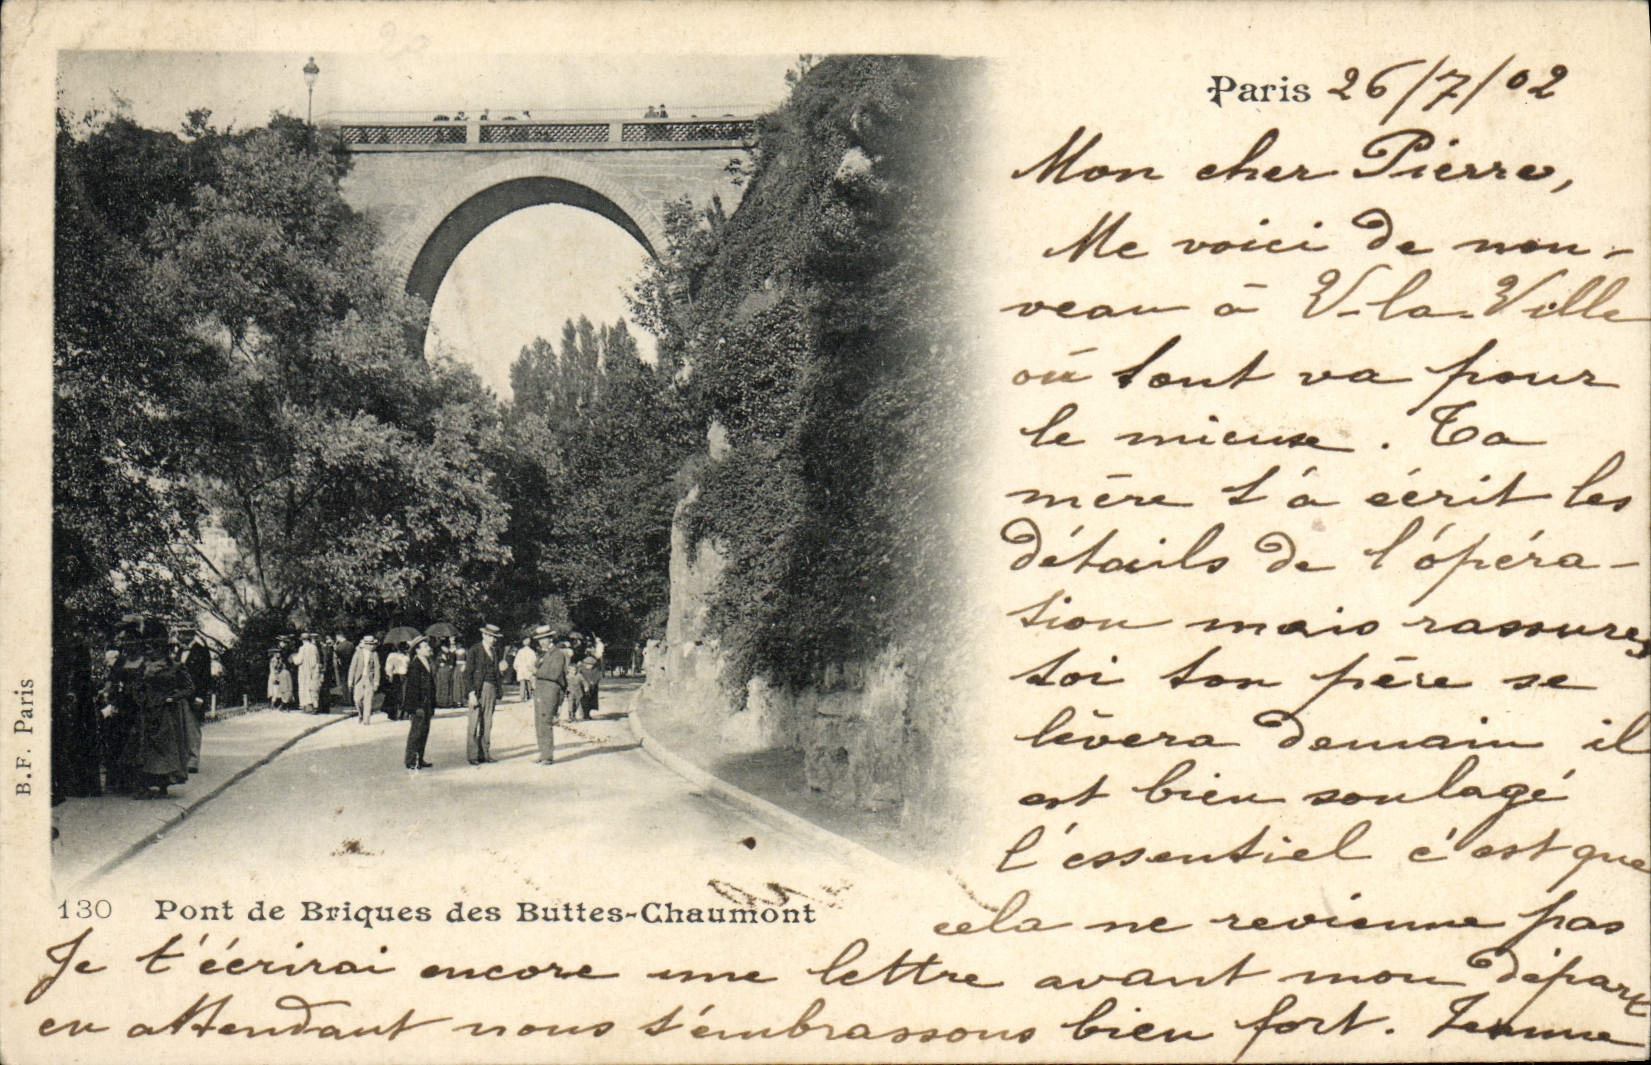 Paris 26/7/02
Mon cher Pierre,
Me voici de nou-
veau à V-la-Ville
où tout va pour
le mieux. Ta
mère t'a écrit les
détails de l'opéra-
tion mais rassures
toi ton père se
lèvera demain il
est bien soulagé
l'essentiel c'est que
cela ne revienne pas
Je t'écrirai encore une lettre avant mon départ
en attendant nous t'embrassons bien fort. Jeanne
130 Pont de Briques des Buttes-Chaumont
B.F. Paris